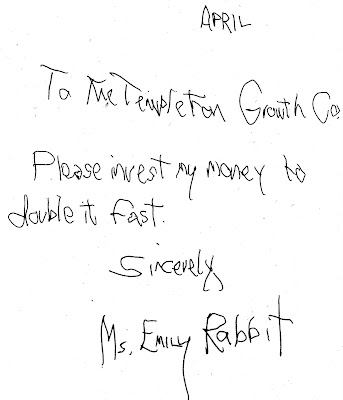 APRIL
To The Templeton Growth Co.
Please invest my money to
double it fast.
Sincerely,
Ms. Emily Rabbit